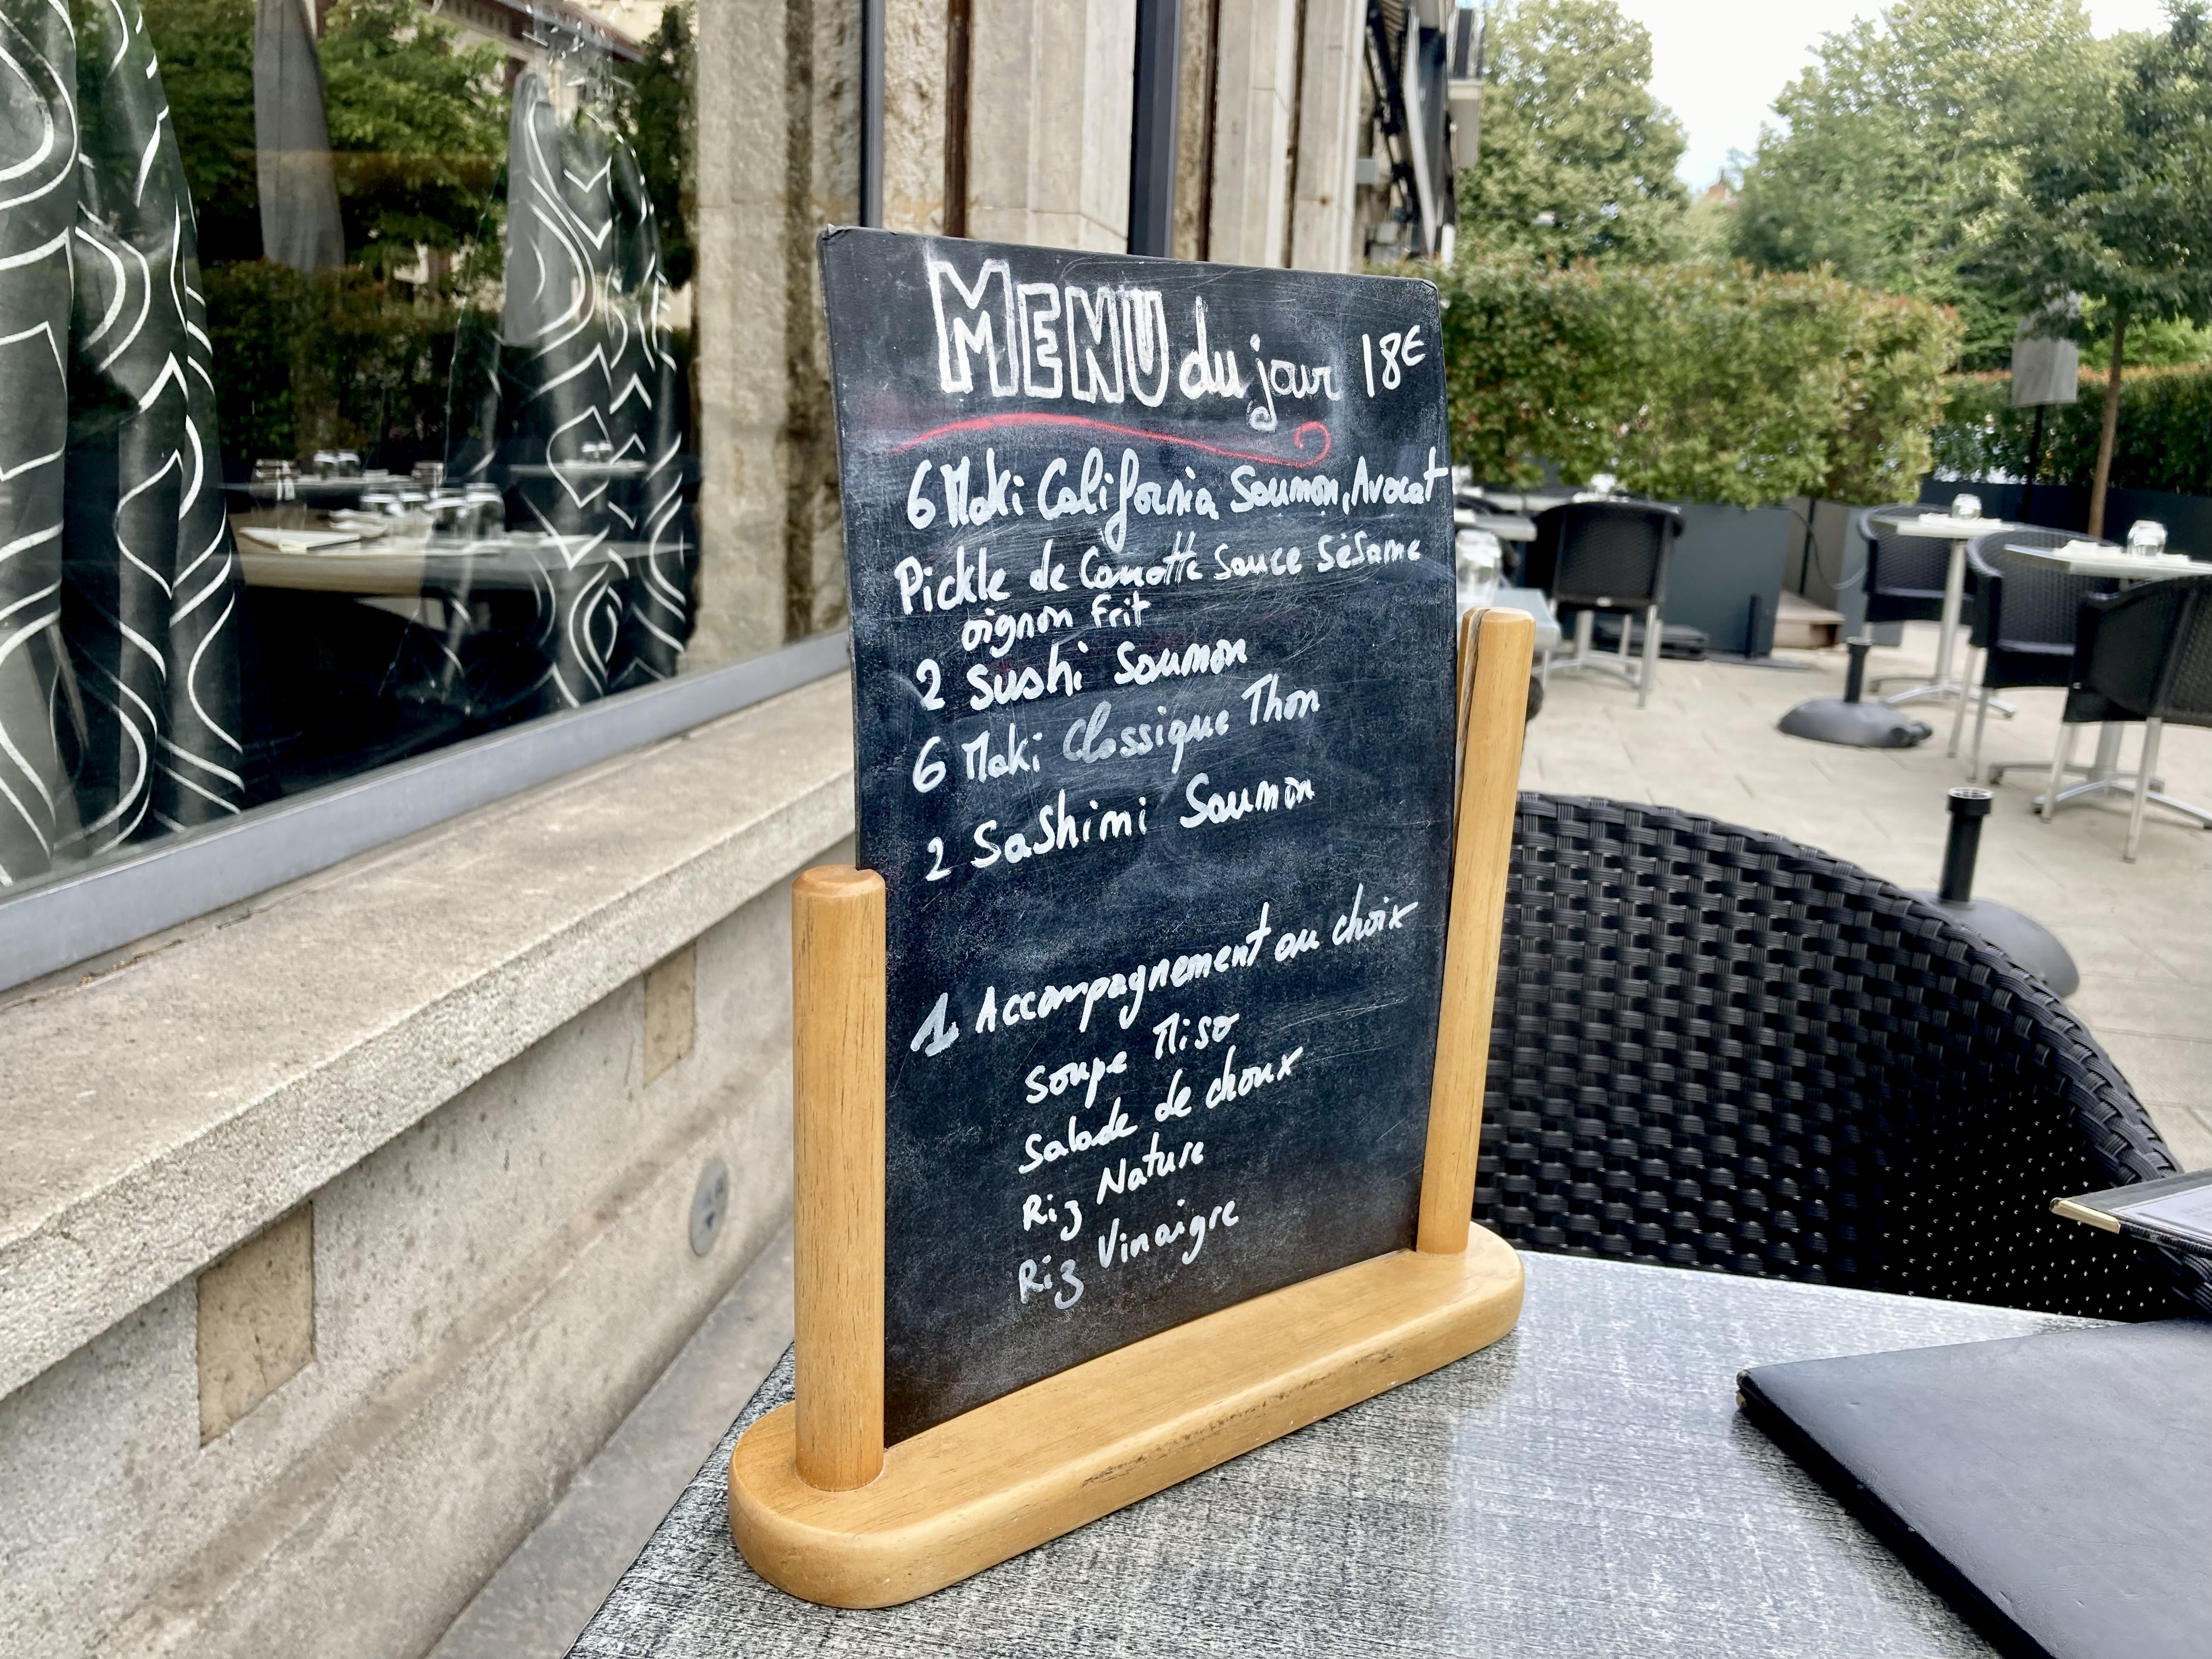 MENU du jour 18€
6 Maki California Saumon, Avocat
Pickle de Carotte Sauce Sésame
oignon frit
2 Sushi Saumon
6 Maki Classique Thon
2 Sashimi Saumon
1 Accompagnement au choix
Soupe Miso
Salade de choux
Riz Nature
Riz Vinaigre